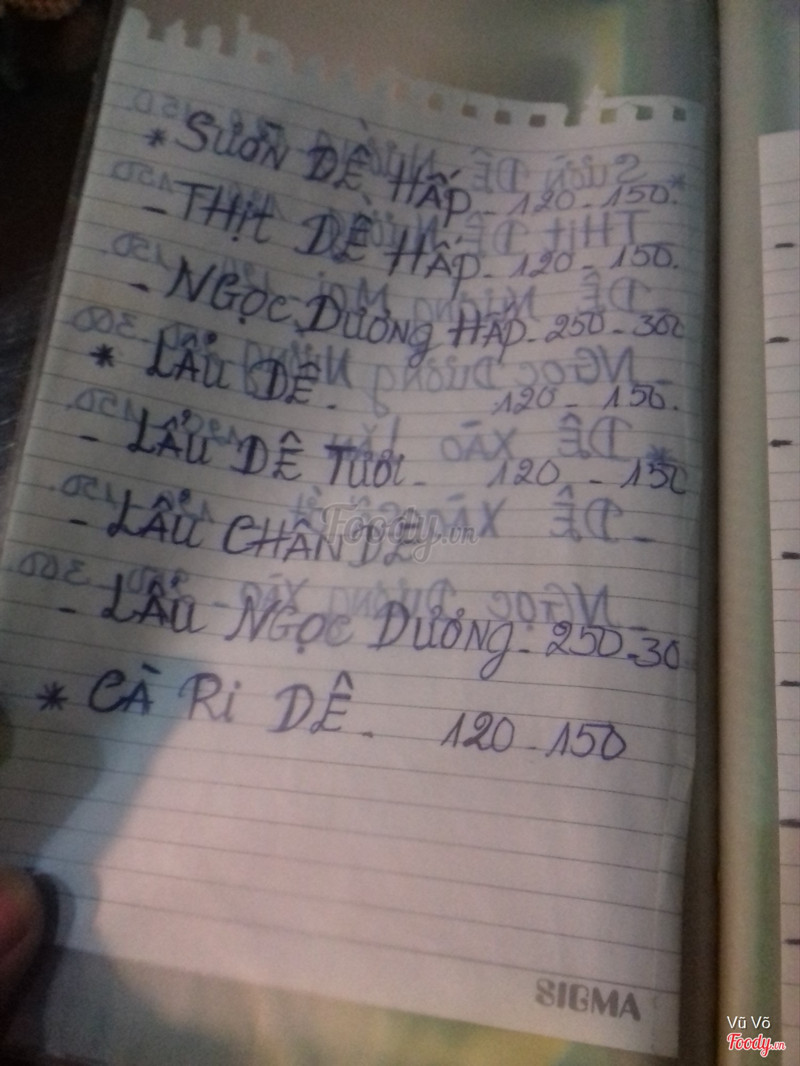 * SƯỜN DÊ HẤP - 120 - 150.
- THỊT DÊ HẤP - 120 - 150.
- NGỌC DƯƠNG HẤP - 250 - 300
* LẨU DÊ - 120 - 150.
- LẨU DÊ TƯƠI - 120 - 150
- LẨU CHÂN DÊ
- LẨU NGỌC DƯƠNG - 250 - 30
* CÀ Ri DÊ - 120 - 150
SIGMA
Foody.vn
Vũ Võ
Foody.vn